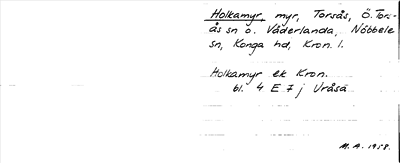 Holkamyr, myr, Torsås, Ö. Tors-
ås sn o. Väderlanda, Nöbbele
sn, Konga hd, Kron. l.
Holkamyr ek Kron.
bl. 4 E 7 j Uråsa
M. A. 1958.